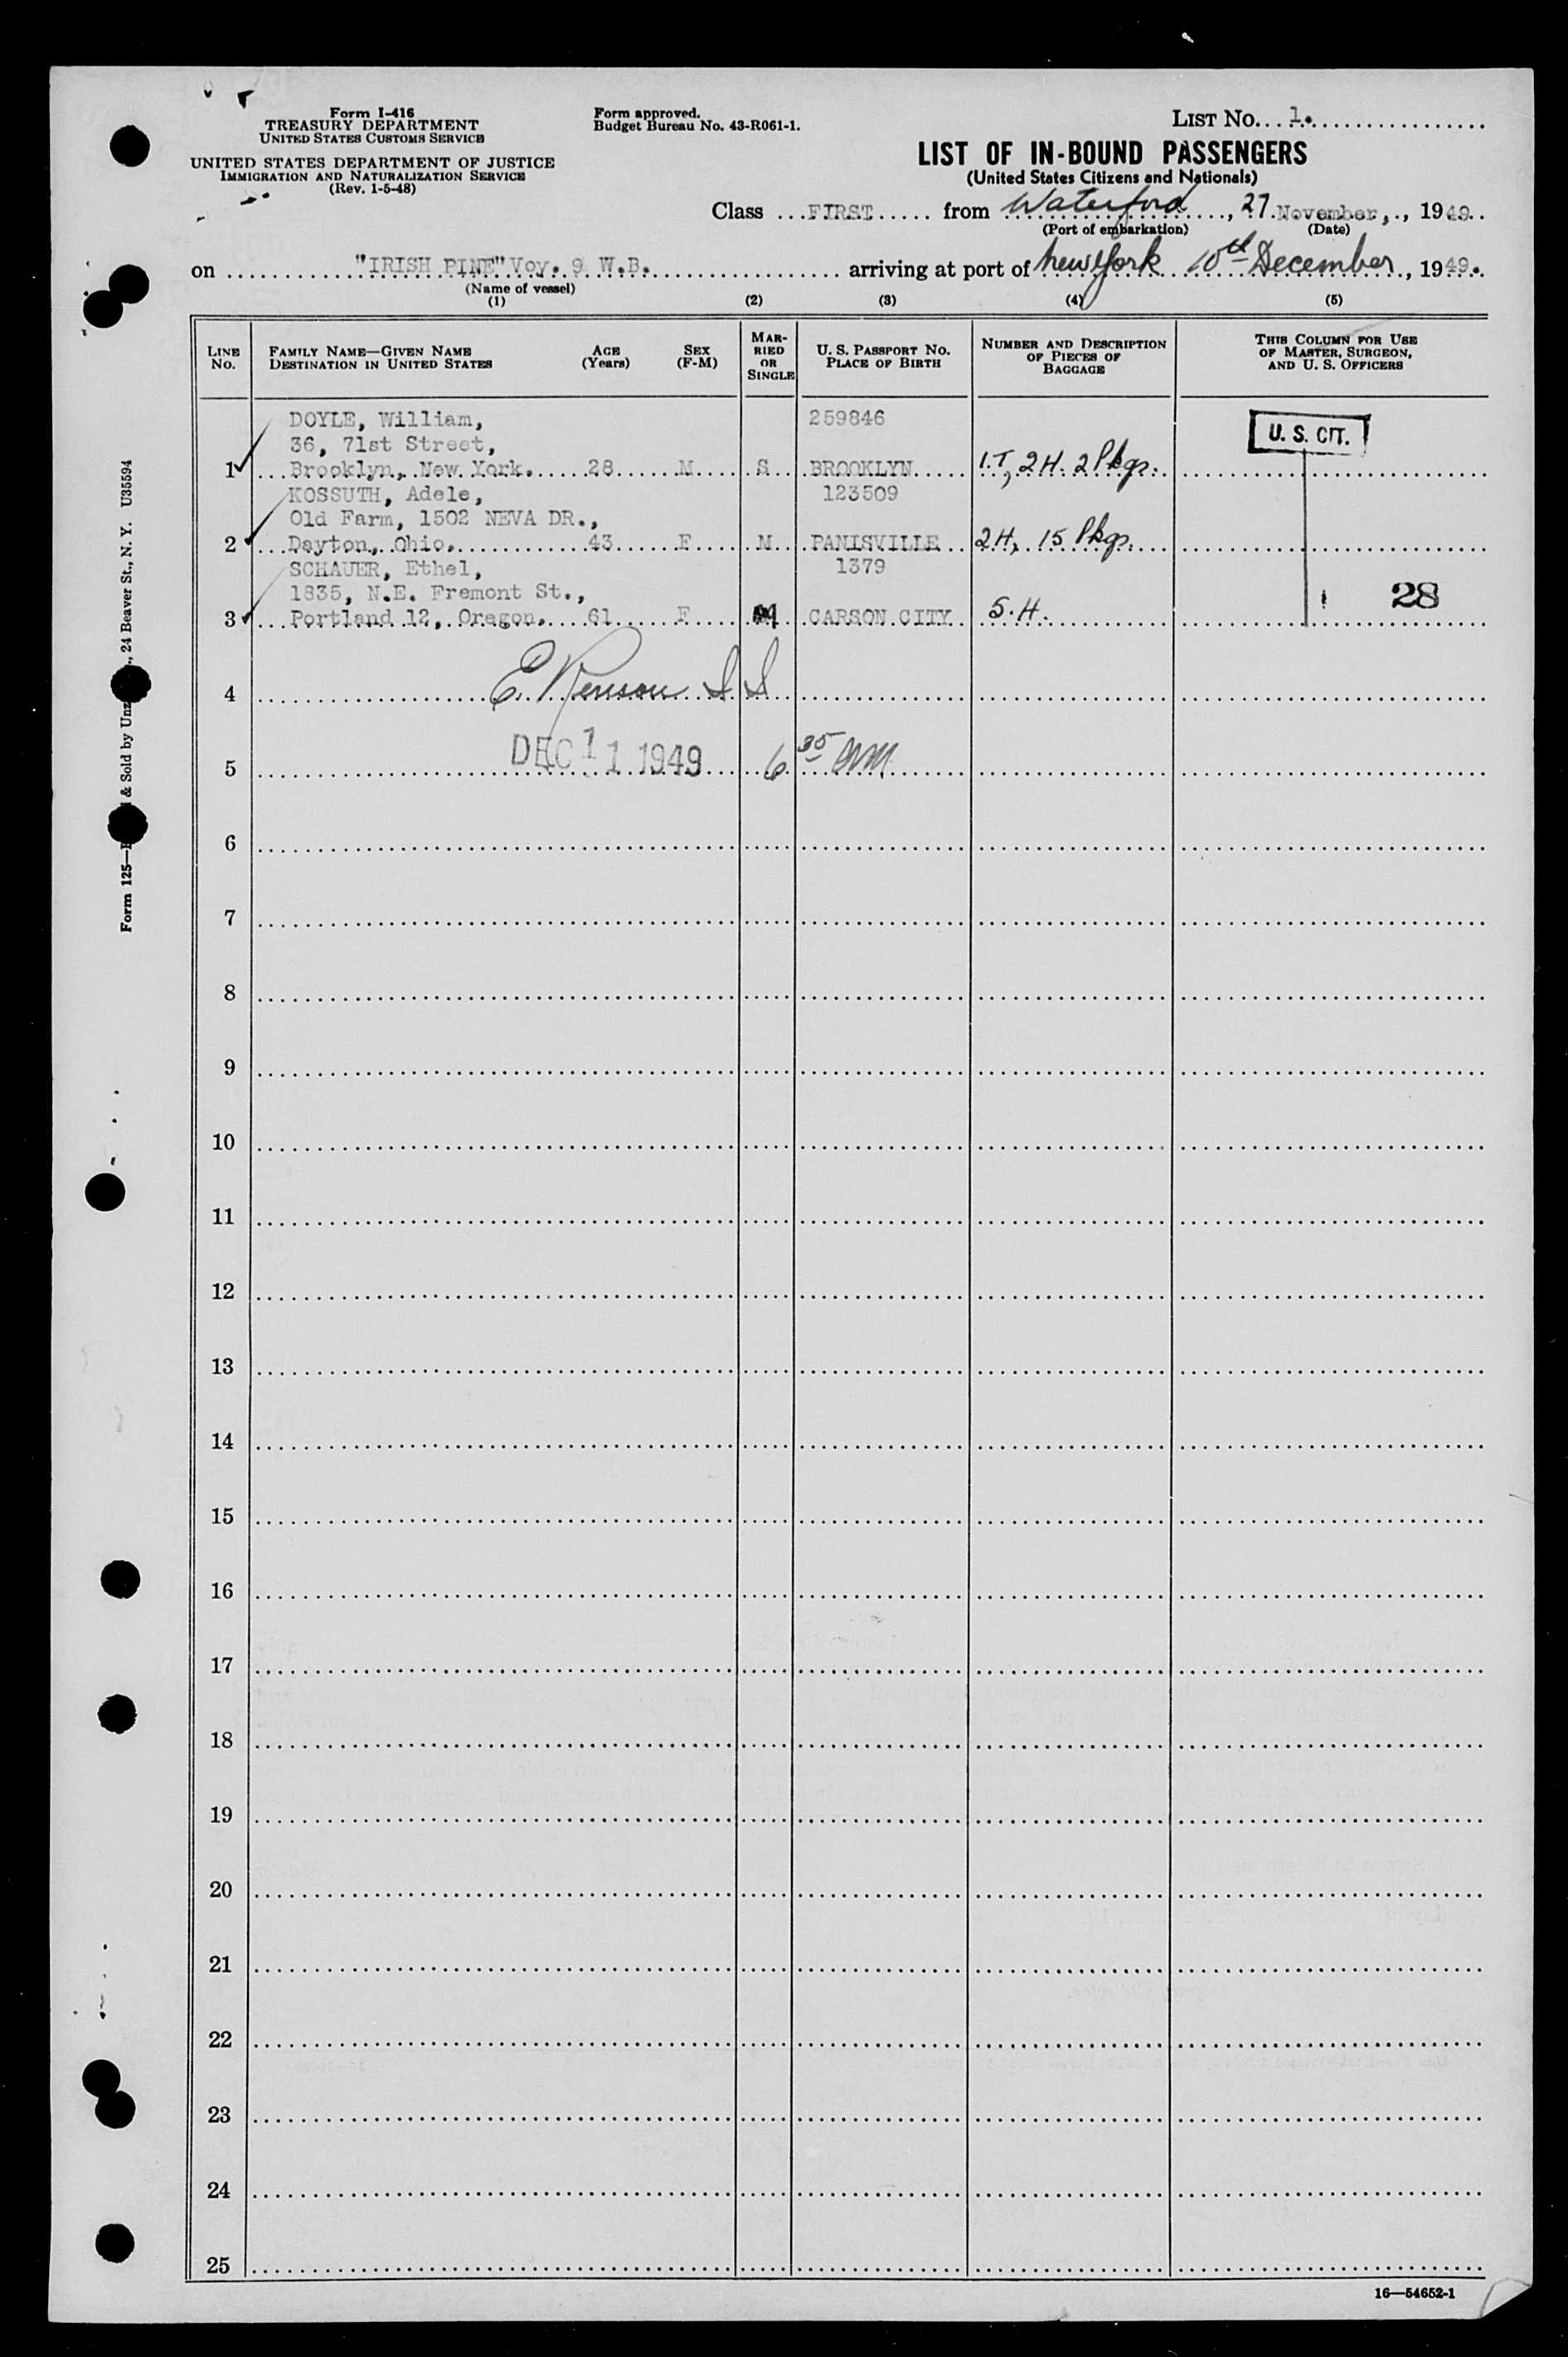 Form I-416
TREASURY DEPARTMENT
UNITED STATES CUSTOMS SERVICE
UNITED STATES DEPARTMENT OF JUSTICE
IMMIGRATION AND NATURALIZATION SERVICE
(Rev. 1-5-48)
Form approved.
Budget Bureau No. 43-R061-1.
LIST No. 1.
LIST OF IN-BOUND PASSENGERS
(United States Citizens and Nationals)
Class FIRST from Waterford, 27 November, 1949
(Port of embarkation) (Date)
on "IRISH PINE" Voy. 9 W.B. arriving at port of New York 10th December, 1949.
(Name of vessel)
(1) (2) (3) (4) (5)
LINE No.
FAMILY NAME—GIVEN NAME
DESTINATION IN UNITED STATES
AGE (Years)
SEX (F-M)
MARRIED OR SINGLE
U. S. PASSPORT No.
PLACE OF BIRTH
NUMBER AND DESCRIPTION OF PIECES OF BAGGAGE
THIS COLUMN FOR USE OF MASTER, SURGEON, AND U. S. OFFICERS
DOYLE, William, 259846
36, 71st Street, U. S. CIT.
1 Brooklyn, New York. 28 M S BROOKLYN 1.T, 2H. 2 Pkgs.
KOSSUTH, Adele, 123509
Old Farm, 1502 NEVA DR.,
2 Dayton, Ohio. 43 F M PANISVILLE 2H, 15 Pkgs.
SCHAUER, Ethel, 1379
1835, N.E. Fremont St., 28
3 Portland 12, Oregon. 61 F M CARSON CITY 5.H.
4
DEC 11 1949 6 35
5
6
7
8
9
10
11
12
13
14
15
16
17
18
19
20
21
22
23
24
25
16—54652-1
Form 125— & Sold by Unz , 24 Beaver St., N. Y. U35594